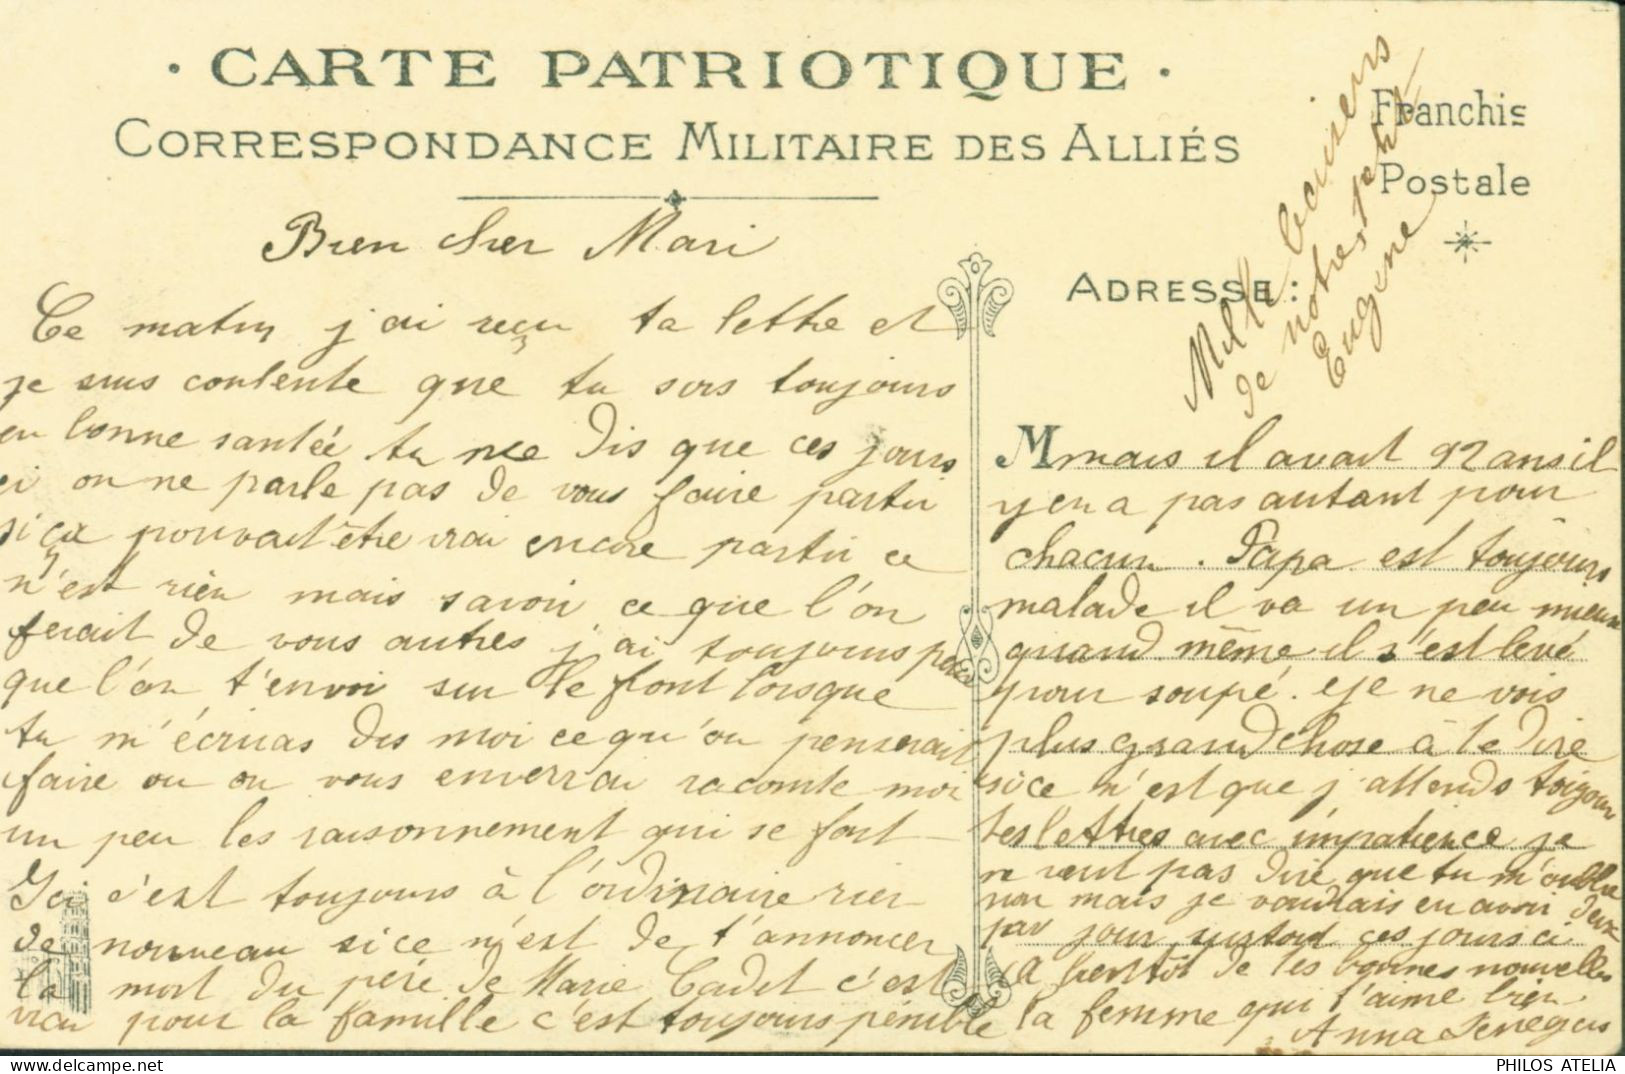 · CARTE PATRIOTIQUE ·
CORRESPONDANCE MILITAIRE DES ALLIÉS
Franchise
Postale
ADRESSE:
Bien cher Mari
Ce matin j'ai reçu ta lettre et
je suis contente que tu sois toujours
en bonne santée tu me dis que ces jours
ci on ne parle pas de vous faire partir
si ça pouvait être vrai encore partir ce
n'est rien mais savoir ce que l'on
ferait de vous autres j'ai toujours peur
que l'on t'envoi sur le front lorsque
tu m'écriras dis moi ce qu'on penserait
faire ou on vous enverrai raconte moi
un peu les raisonnement qui se font
Ici c'est toujours à l'ordinaire rien
de nouveau si ce n'est de t'annoncer
la mort du père de Marie Cadet c'est
vrai pour la famille c'est toujours pénible
M mais il avait 92 ans il
y en a pas autant pour
chacun. Papa est toujours
malade il va un peu mieux
quand même il s'est levé
pour soupé. Je ne vois
plus grand chose à te dire
si ce n'est que j'attends toujours
tes lettres avec impatience je
ne veut pas dire que tu m'oublie
non mais je voudrais en avoir deux
par jour surtout ces jours ci
A bientôt de tes bonnes nouvelles
la femme qui t'aime bien
Anna
Mille baisers
de notre petit
Eugène
PHILOS ATELIA